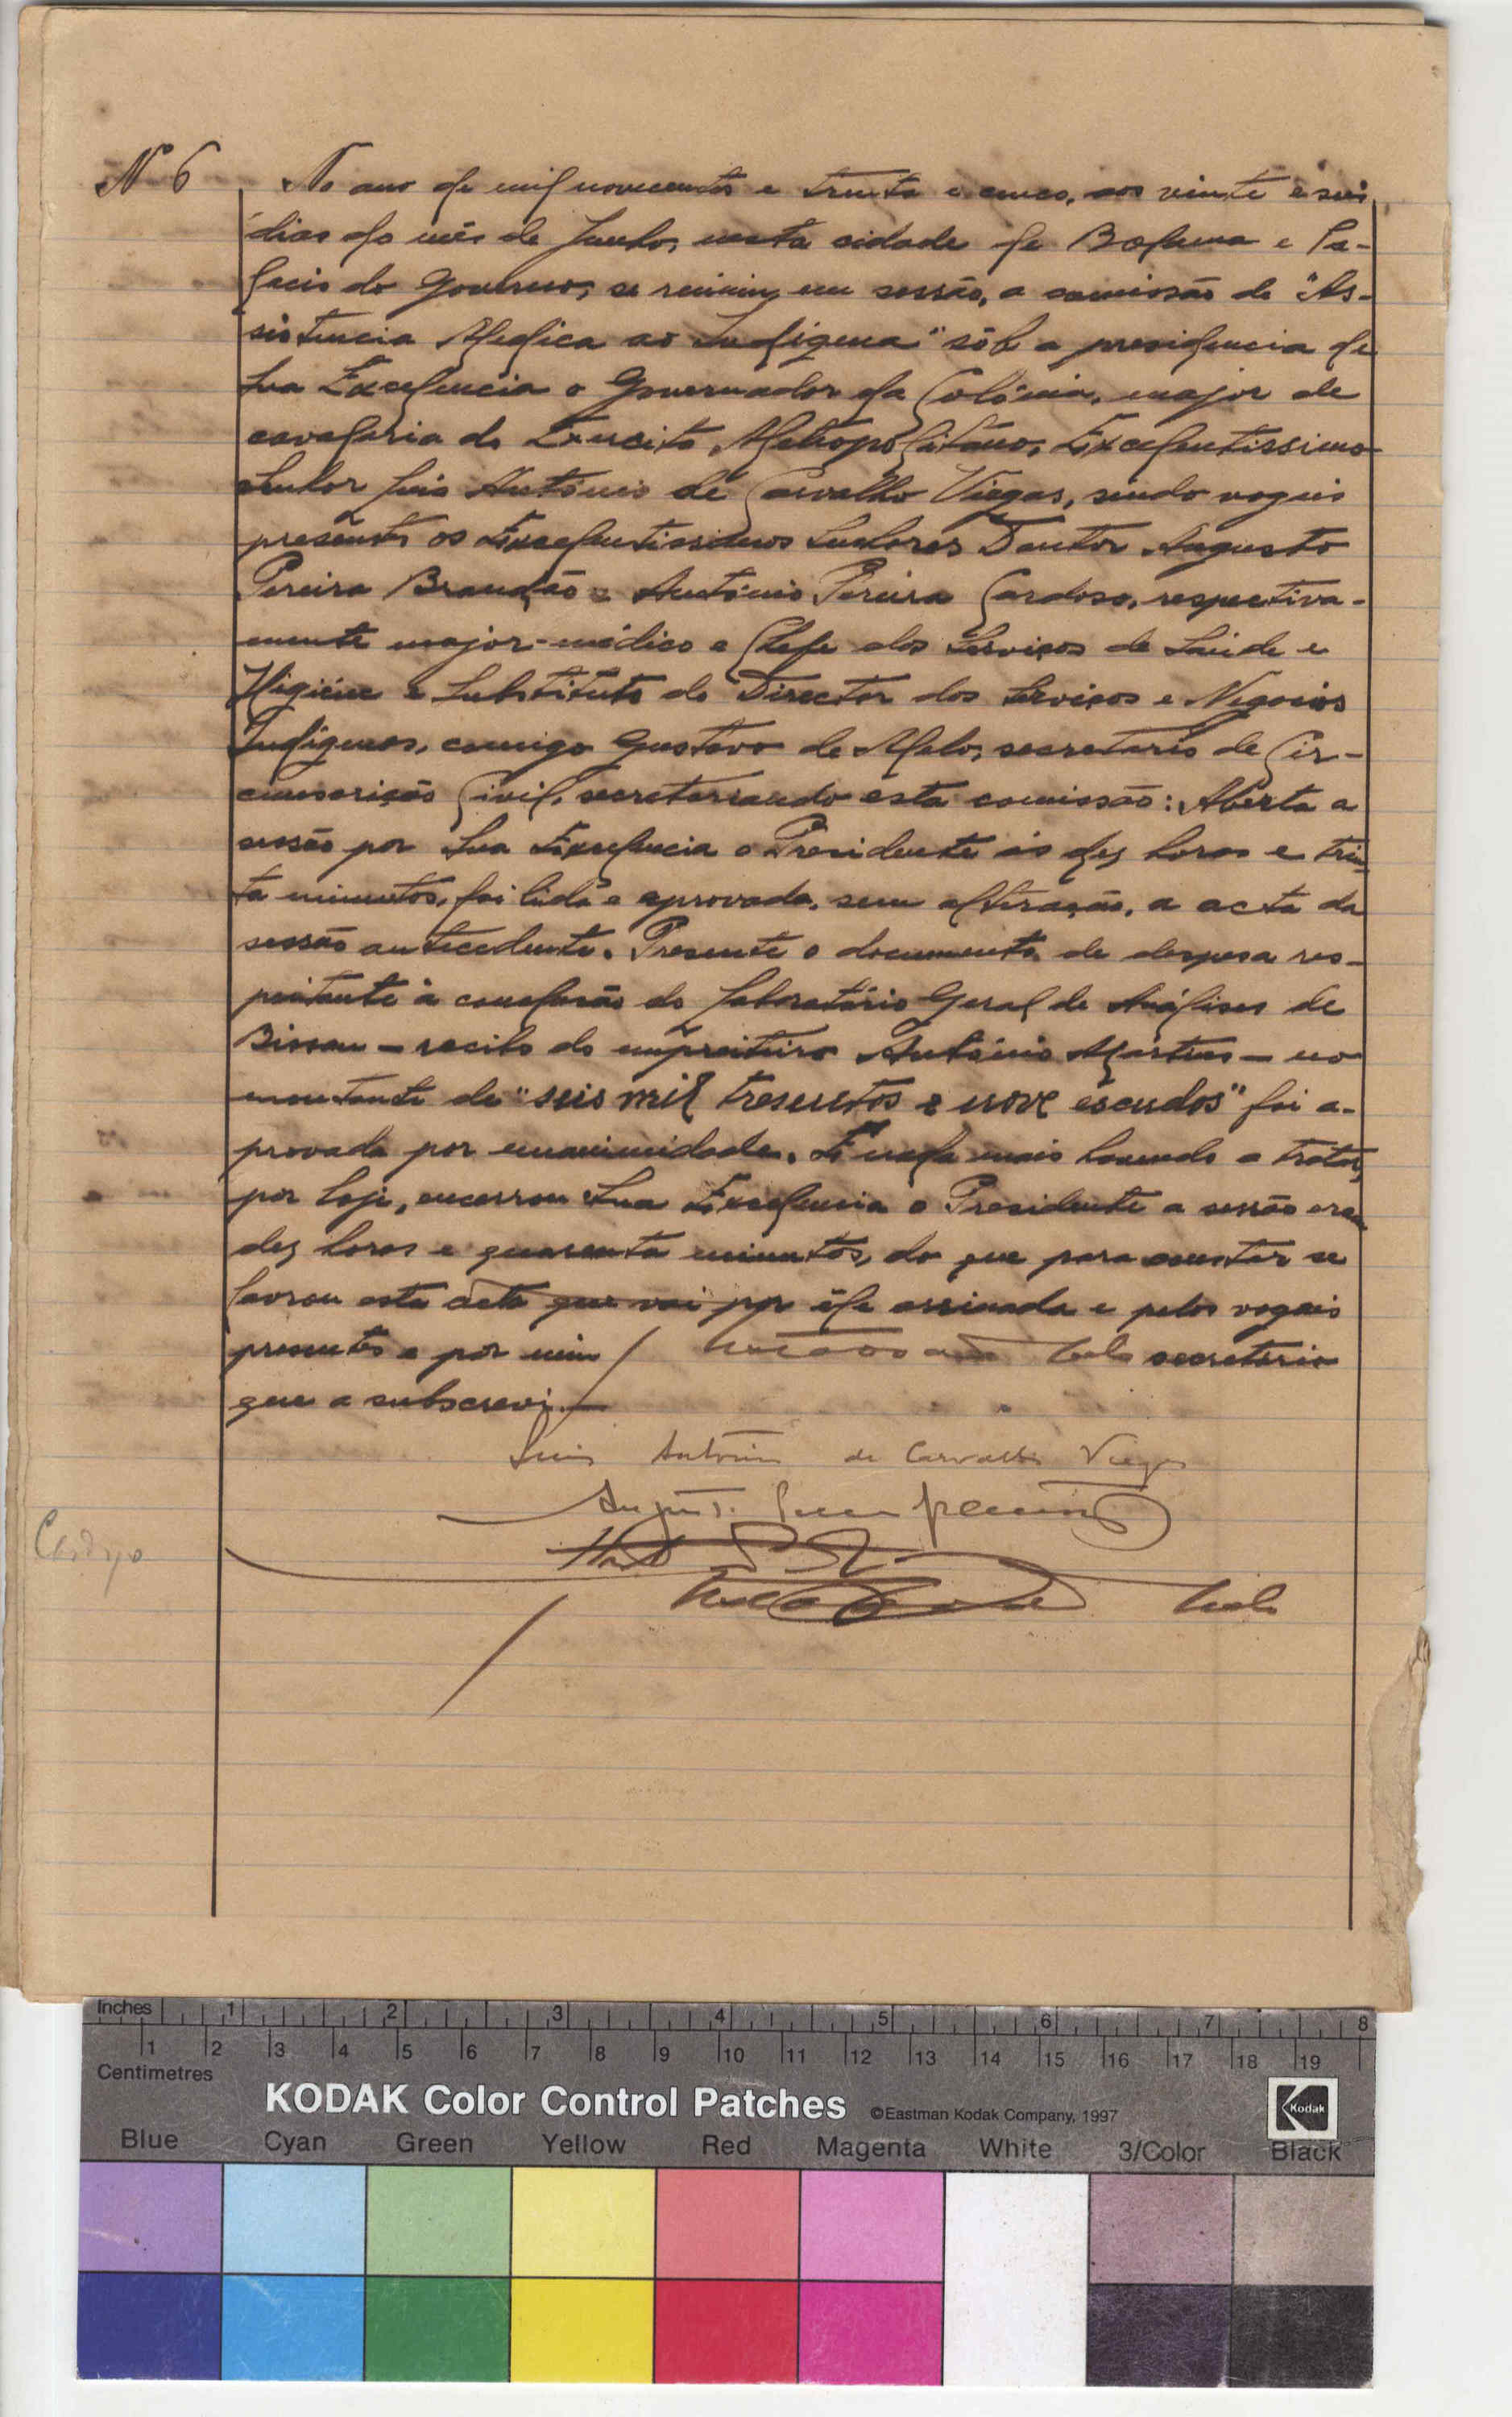 Nº 6 No ano de mil novecentos e trinta e cinco, aos vinte e seis
dias do mês de Junho, nesta cidade de Bolama e Pa-
lacio do Governo, se reuniu, em sessão, a comissão de "As-
sistencia Medica ao Indigena" sôb a presidencia de
Sua Excelencia o Governador da Colónia, major de
cavalaria do Exercito Metropolitano, Excelentissimo
Senhor Luis António de Carvalho Viegas, sendo vogais
presentes os Excelentissimos Senhores Doutor Augusto
Pereira Brandão e António Pereira Cardoso, respectiva-
mente major-médico e Chefe dos Serviços de Saúde e
Higiene e Substituto do Director dos Serviços e Negocios
Indigenas, comigo Gustavo de Melo, secretario de Cir-
cunscrição Civil, secretariando esta comissão: Aberta a
sessão por Sua Excelencia o Presidente ás dez horas e trin-
ta minutos, foi lida e aprovada, sem alteração, a acta da
sessão antecedente. Presente o documento de despesa res-
peitante à conclusão do Laboratório Geral de Análises de
Bissau — recibo do empreiteiro António Martins — no
montante de "seis mil tresentos e nove escudos" foi a-
provada por unanimidade. E nada mais havendo a tratar,
por hoje, encerrou Sua Excelencia o Presidente a sessão eram
dez horas e quarenta minutos, do que para constar se
lavrou esta acta que vai por êle assinada e pelos vogais
presentes e por mim / Melo secretário
que a subscrevi.—
Luis António de Carvalho Viegas
Melo
Inches 1 2 3 4 5 6 7 8
1 2 3 4 5 6 7 8 9 10 11 12 13 14 15 16 17 18 19
Centimetres
KODAK Color Control Patches ©Eastman Kodak Company, 1997 Kodak
Blue Cyan Green Yellow Red Magenta White 3/Color Black